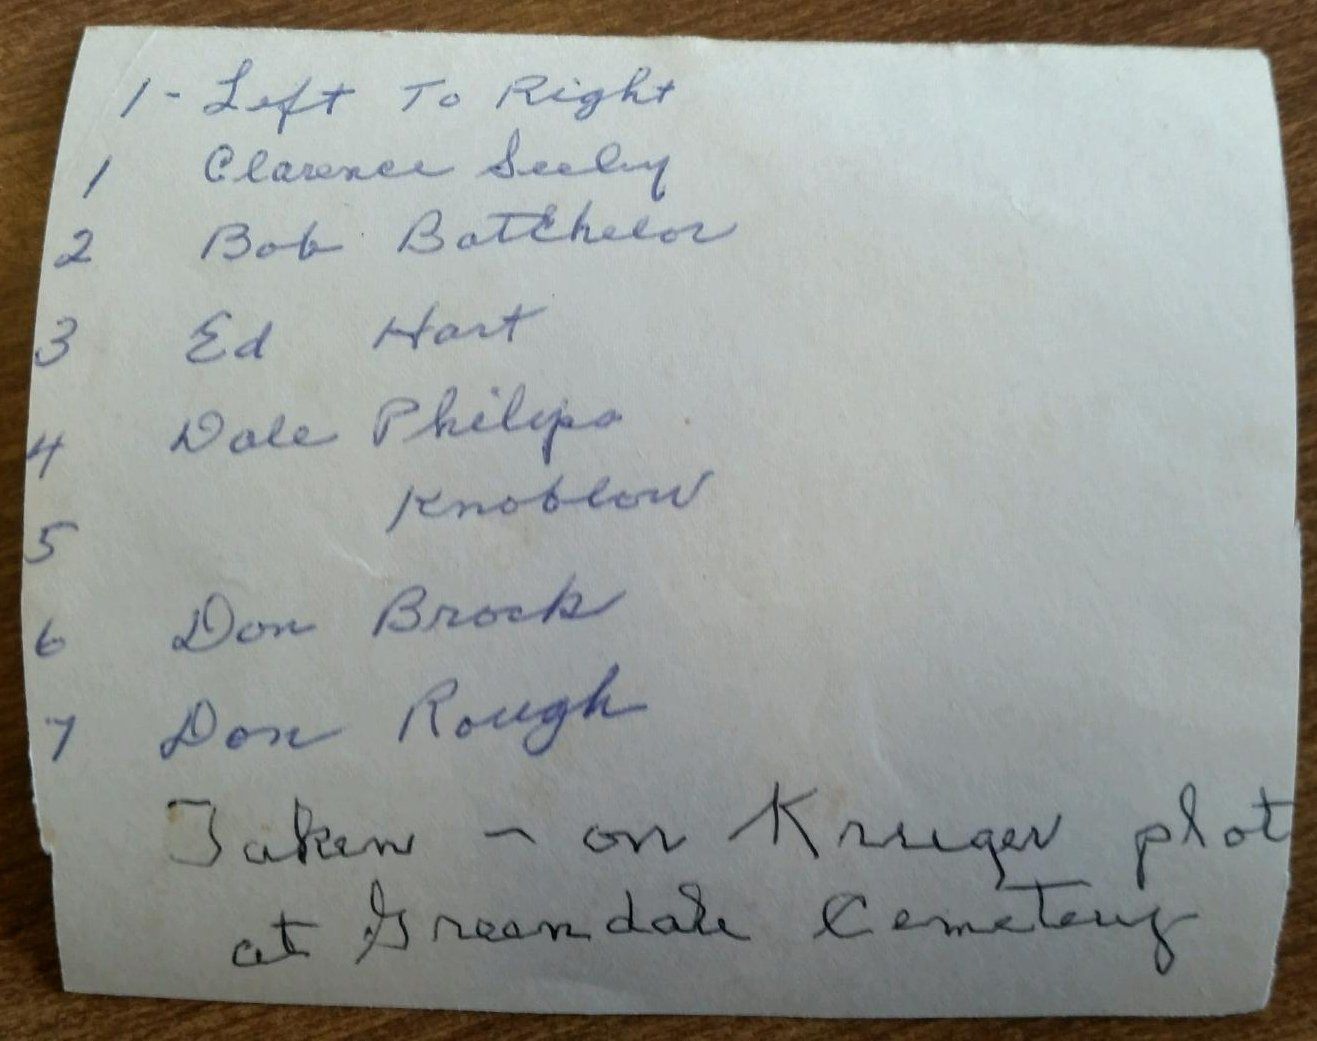 1- Left To Right
1 Clarence Seeley
2 Bob Batchelor
3 Ed Hart
4 Dale Philips
5 Knoblow
6 Don Brock
7 Don Rough
Taken - on Krueger plot
at Greendale Cemetery